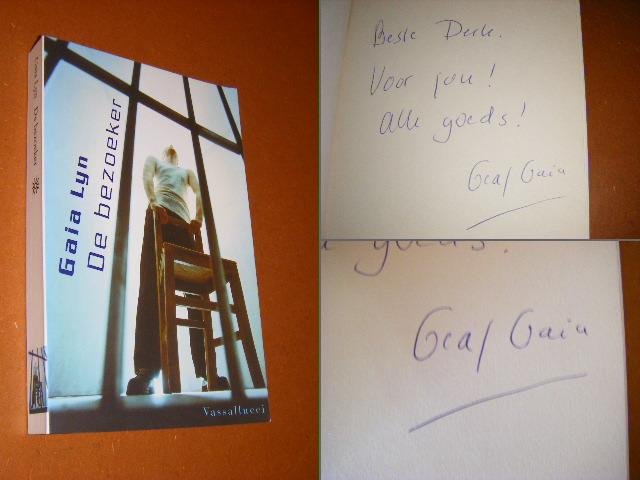 Gaia Lyn De bezoeker
Gaia Lyn
De bezoeker
Vassallucci
Beste Derk.
Voor jou!
Alle goeds!
Graf Gaia
goeds!
Graf Gaia